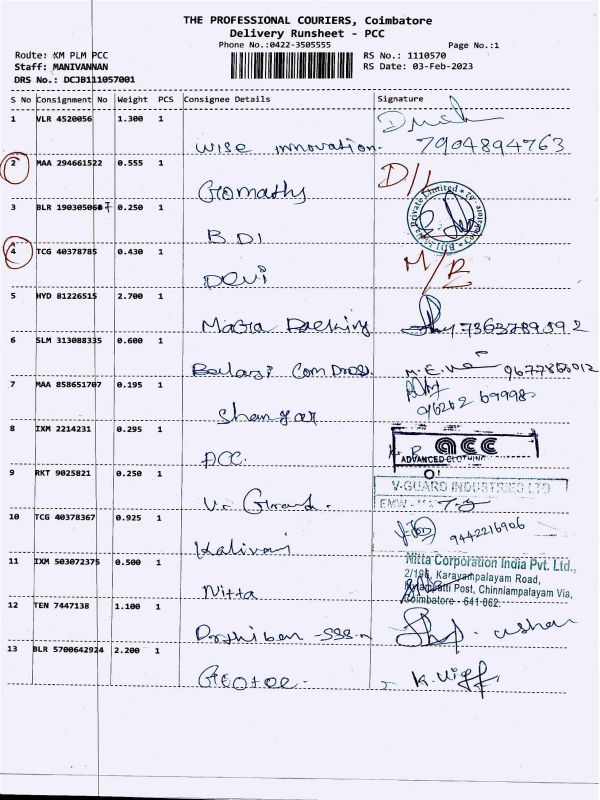 THE PROFESSIONAL COURIERS, Coimbatore
Delivery Runsheet - PCC
Phone No.:0422-3505555
Page No.:1
Route: KM PLM PCC
RS No.: 1110570
Staff: MANIVANNAN
RS Date: 03-Feb-2023
DRS No.: DCJB111057001
S No Consignment No Weight PCS Consignee Details Signature
1 VLR 4520056 1.300 1
wise innovation. 7904894763
2 MAA 294661522 0.555 1 D/L
Gomathy
3 BLR 190305067 0.250 1
BDI
4 TCG 40378785 0.430 1 M/R
DEVI
5 HYD 81226515 2.700 1
Magra Packing
6 SLM 313088335 0.600 1
Balaji
7 MAA 858651707 0.195 1
Shangar
8 IXM 2214231 0.295 1 acc
ACC. ADVANCED CLOTHING
9 RKT 9025821 0.250 1 V-GUARD INDUSTRIES LTD
V. Guard.
10 TCG 40378367 0.925 1
Kalivani 9442216906
11 IXM 503072375 0.500 1 Nitta Corporation India Pvt. Ltd.,
2/196, Karayampalayam Road,
Nitta Post, Chinniampalayam Via,
Coimbatore - 641 062.
12 TEN 7447138 1.100 1
13 BLR 5700642924 2.200 1